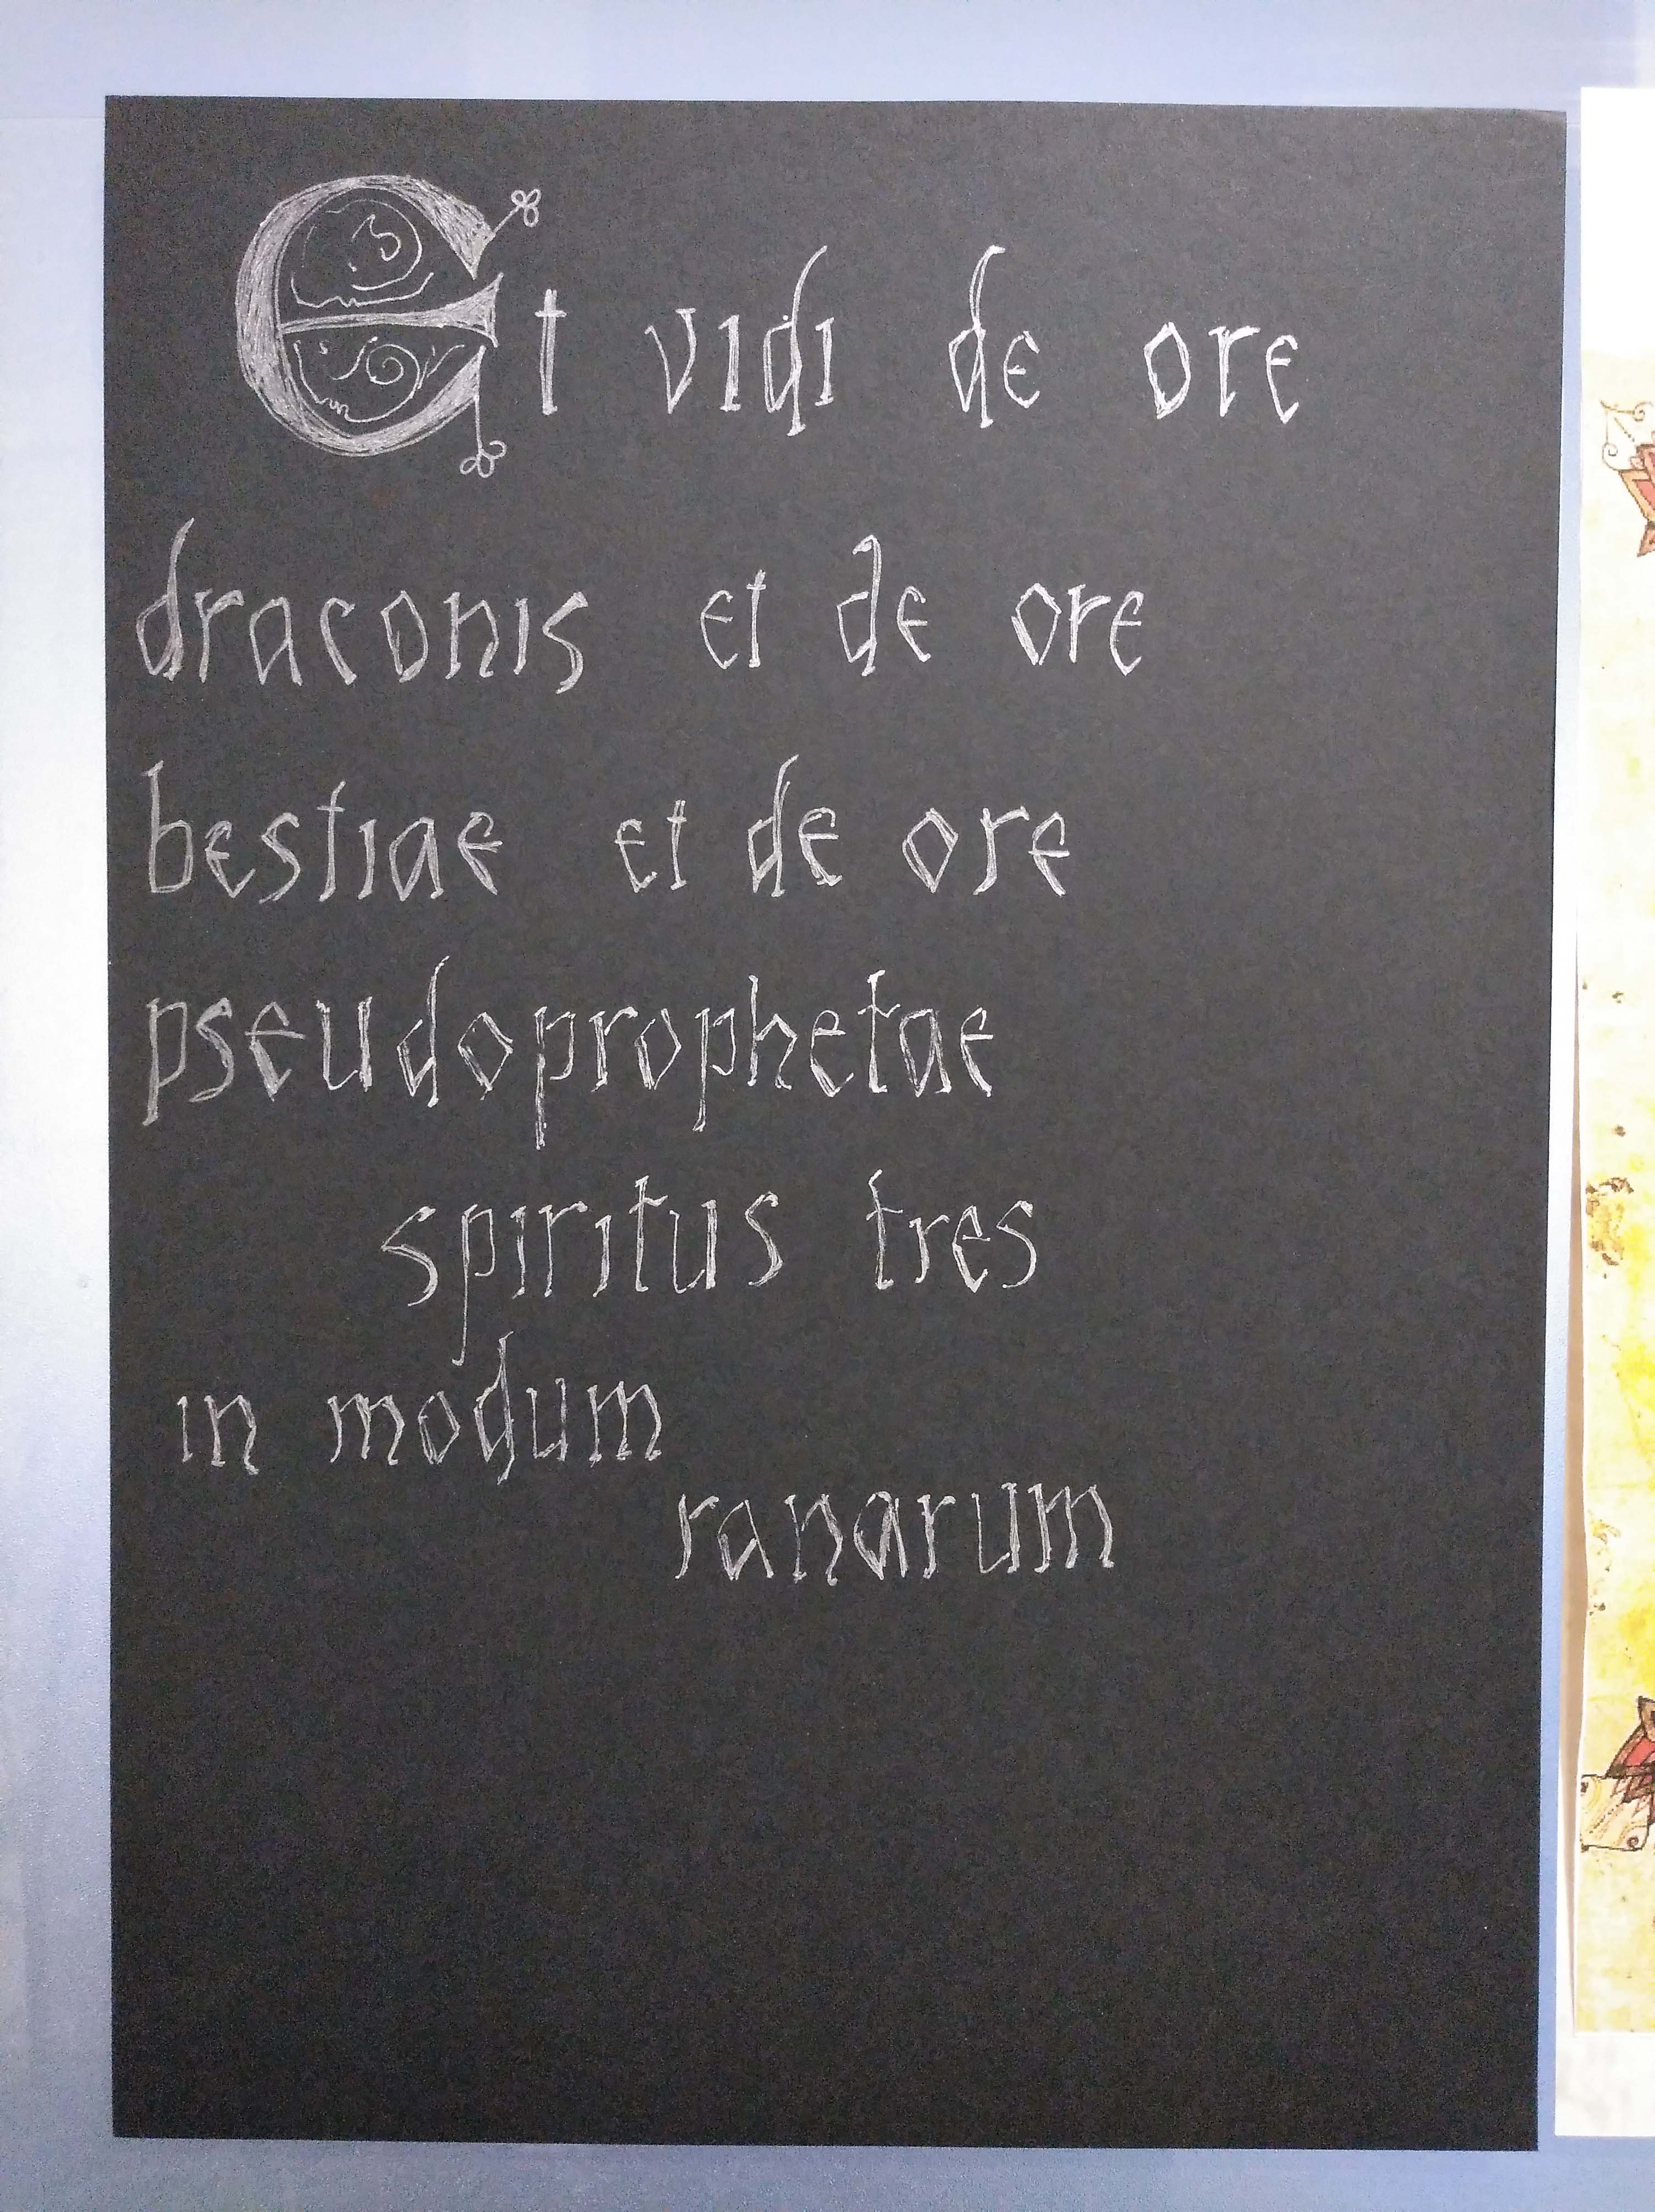 Et vidi de ore
draconis et de ore
bestiae et de ore
pseudoprophetae
spiritus tres
in modum
ranarum